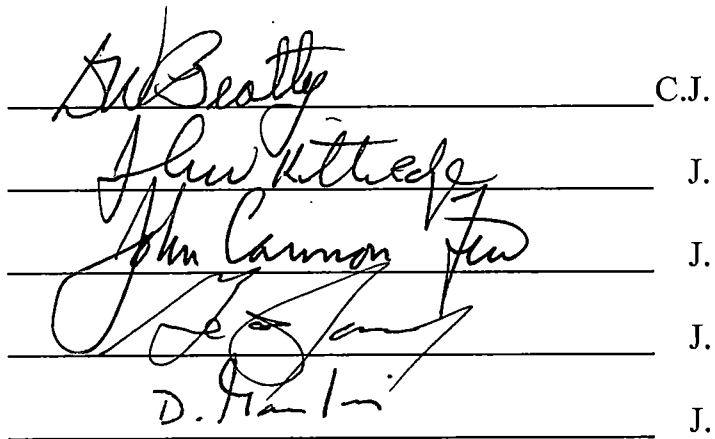 DW Beatty C.J.
John Kittredge J.
John Cannon Few J.
J.
D. J.